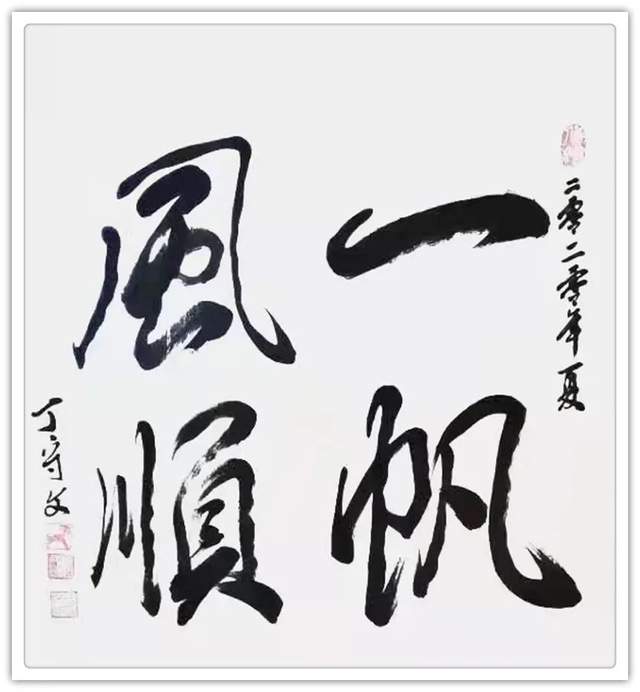 二零二零年夏
一帆
風順
丁守文